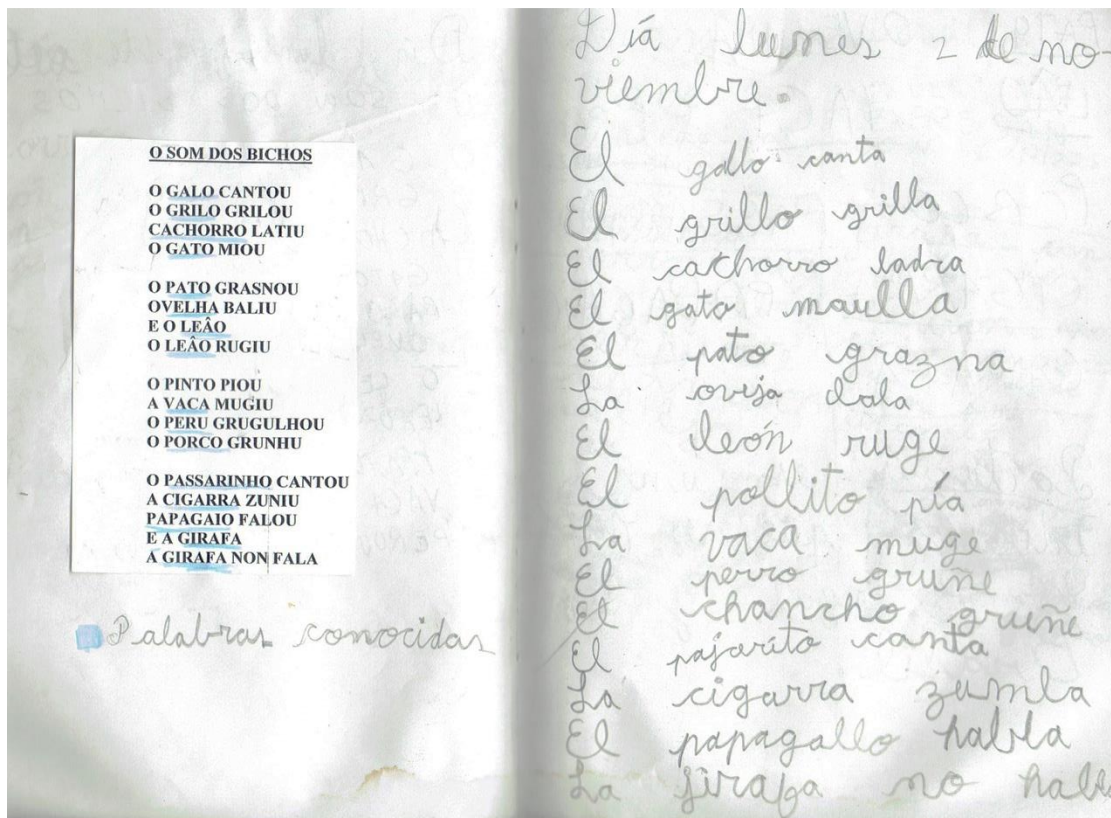 O SOM DOS BICHOS
O GALO CANTOU
O GRILO GRILOU
CACHORRO LATIU
O GATO MIOU
O PATO GRASNOU
OVELHA BALIU
E O LEÂO
O LEÂO RUGIU
O PINTO PIOU
A VACA MUGIU
O PERU GRUGULHOU
O PORCO GRUNHU
O PASSARINHO CANTOU
A CIGARRA ZUNIU
PAPAGAIO FALOU
E A GIRAFA
A GIRAFA NON FALA
Palabras conocidas
Día lunes 2 de no-
viembre.
El gallo canta
El grillo grilla
El cachorro ladra
El gato maulla
El pato grazna
La oveja bala
El león ruge
El pollito pía
La vaca muge
El perro gruñe
El chancho gruñe
El pajarito canta
La cigarra zumba
El papagallo habla
La jirafa no